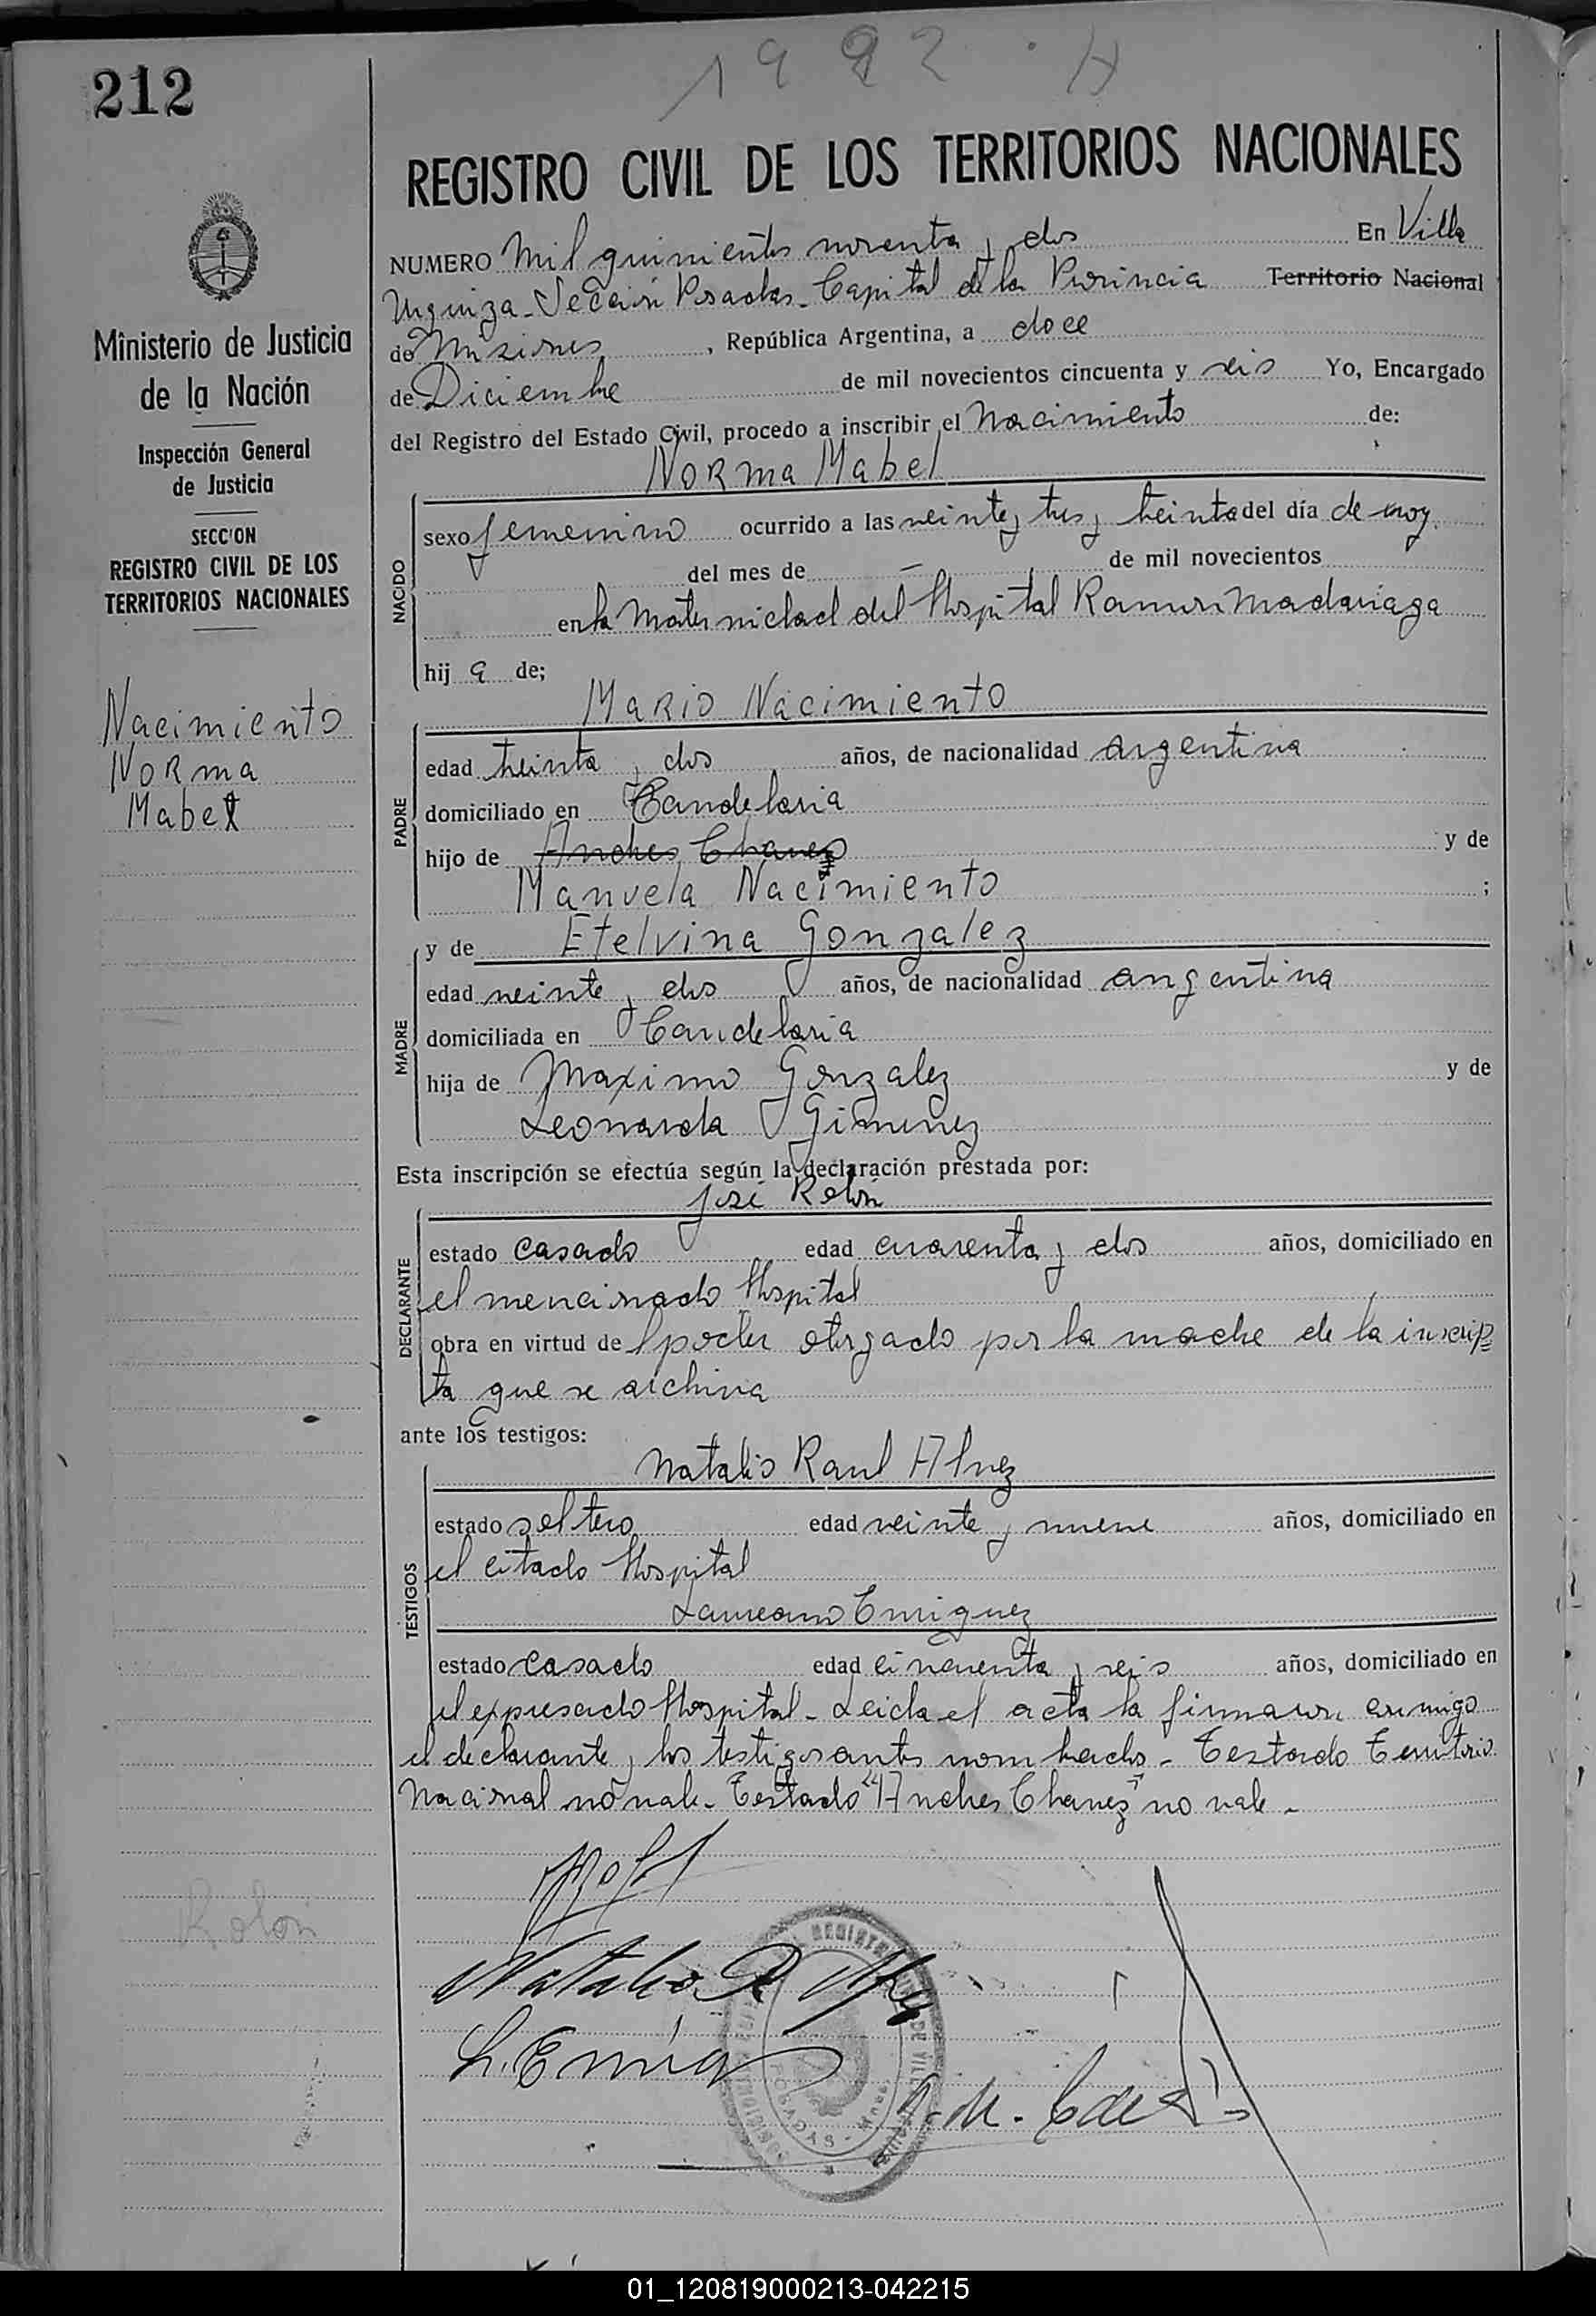 212
REGISTRO CIVIL DE LOS TERRITORIOS NACIONALES
Ministerio de Justicia
de la Nación
Inspección General
de Justicia
SECCION
REGISTRO CIVIL DE LOS
TERRITORIOS NACIONALES
Nacimiento
Norma
Mabel
Rolon
NUMERO Mil quinientos noventa y dos En Villa
Urquiza - Sección Posadas - Capital de la Provincia Territorio Nacional
de Misiones, República Argentina, a doce
de Diciembre de mil novecientos cincuenta y seis Yo, Encargado
del Registro del Estado Civil, procedo a inscribir el Nacimiento de:
Norma Mabel
NACIDO
sexo femenino ocurrido a las veinte y tres y treinta del día de hoy.
del mes de — de mil novecientos
en la Maternidad del Hospital Ramon Madariaga
hija de;
Mario Nacimiento
PADRE
edad treinta y dos años, de nacionalidad argentina
domiciliado en Candelaria
hijo de Andres Chavez y de
Manuela Nacimiento ;
y de Etelvina Gonzalez
MADRE
edad veinte y dos años, de nacionalidad argentina
domiciliada en Candelaria
hija de Maximo Gonzalez y de
Leonarda Gimenez
Esta inscripción se efectúa según la declaración prestada por:
José Rolón
DECLARANTE
estado casado edad cuarenta y dos años, domiciliado en
el mencionado Hospital
obra en virtud de poder otorgado por la madre de la inscrip
ta que se archiva
ante los testigos:
Natalio Raul Alvez
TESTIGOS
estado soltero edad veinte y nueve años, domiciliado en
el citado Hospital
Laureano Enriquez
estado casado edad cincuenta y seis años, domiciliado en
el expresado Hospital - Leida el acta la firmaron conmigo
el declarante y los testigos antes nombrados - Testado Territorio
Nacional no vale - Testado "Andres Chavez" no vale -
Natalio R Alvez
POSADAS
01_120819000213-042215